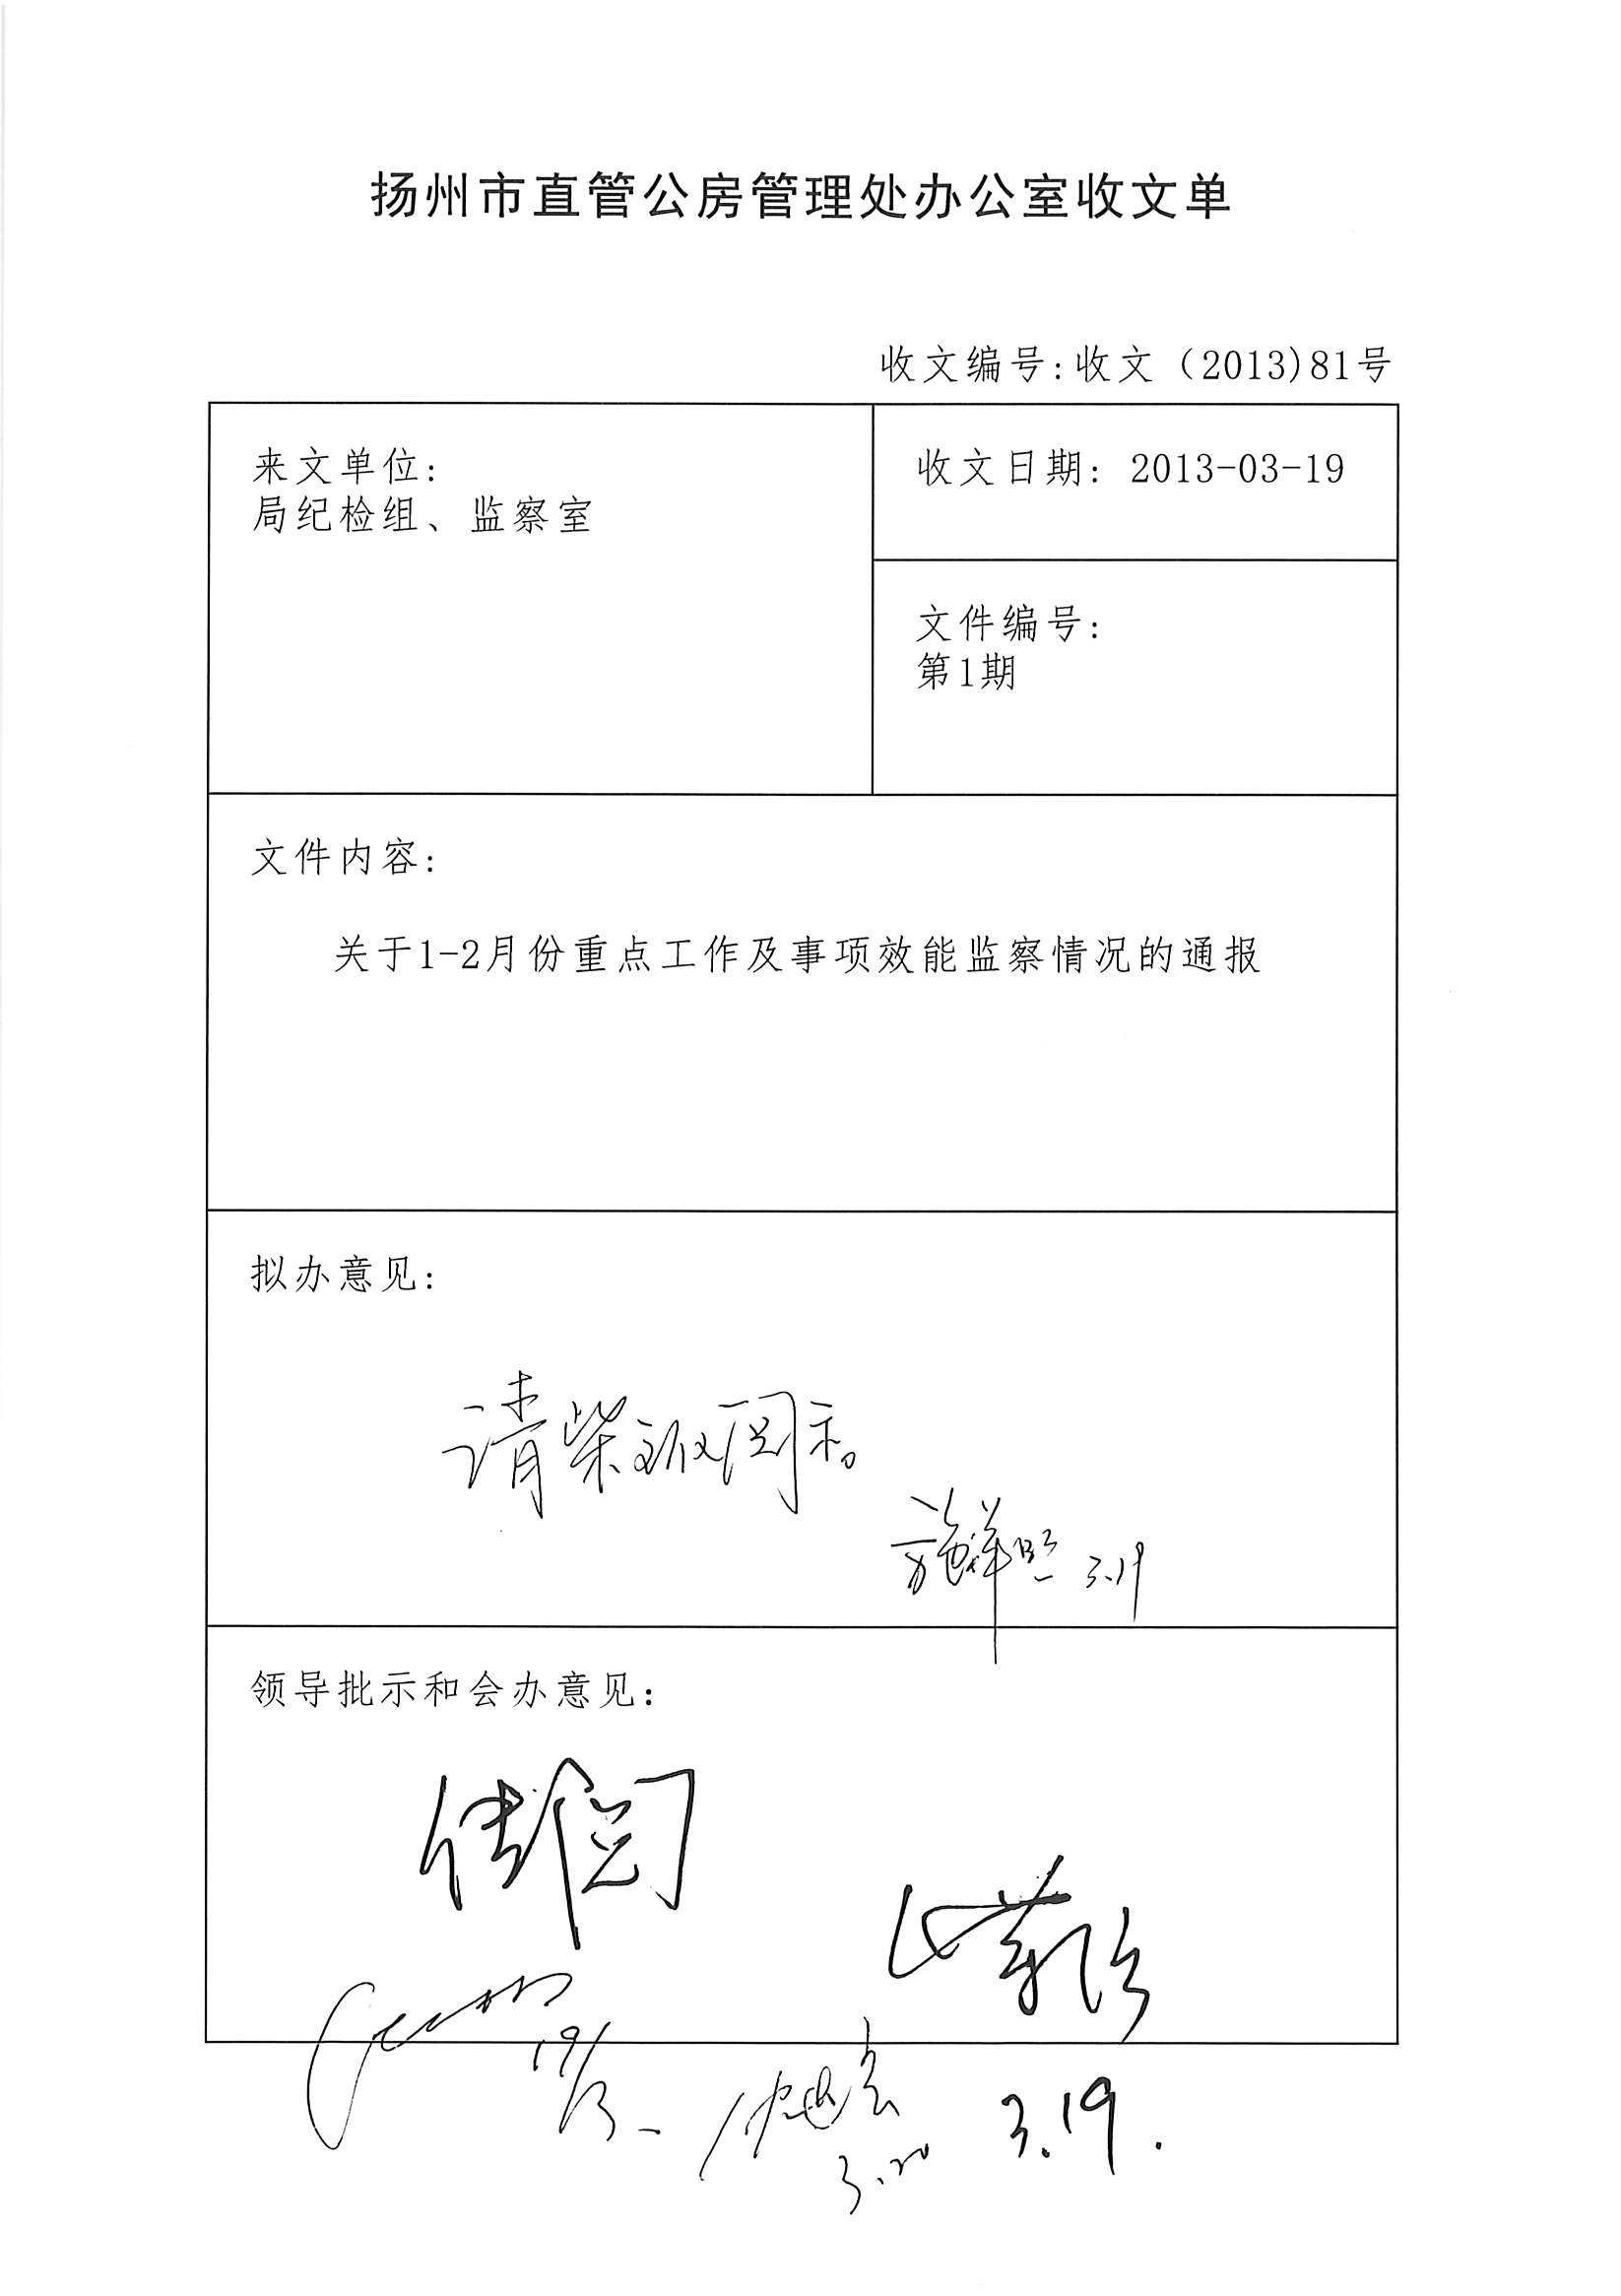 扬州市直管公房管理处办公室收文单
收文编号:收文（2013)81号
来文单位:
局纪检组、监察室
收文日期: 2013-03-19
文件编号:
第1期
文件内容:
关于1-2月份重点工作及事项效能监察情况的通报
拟办意见:
请柴 阅示。
3.19
领导批示和会办意见:
传阅
19/3
3.20
3.19.